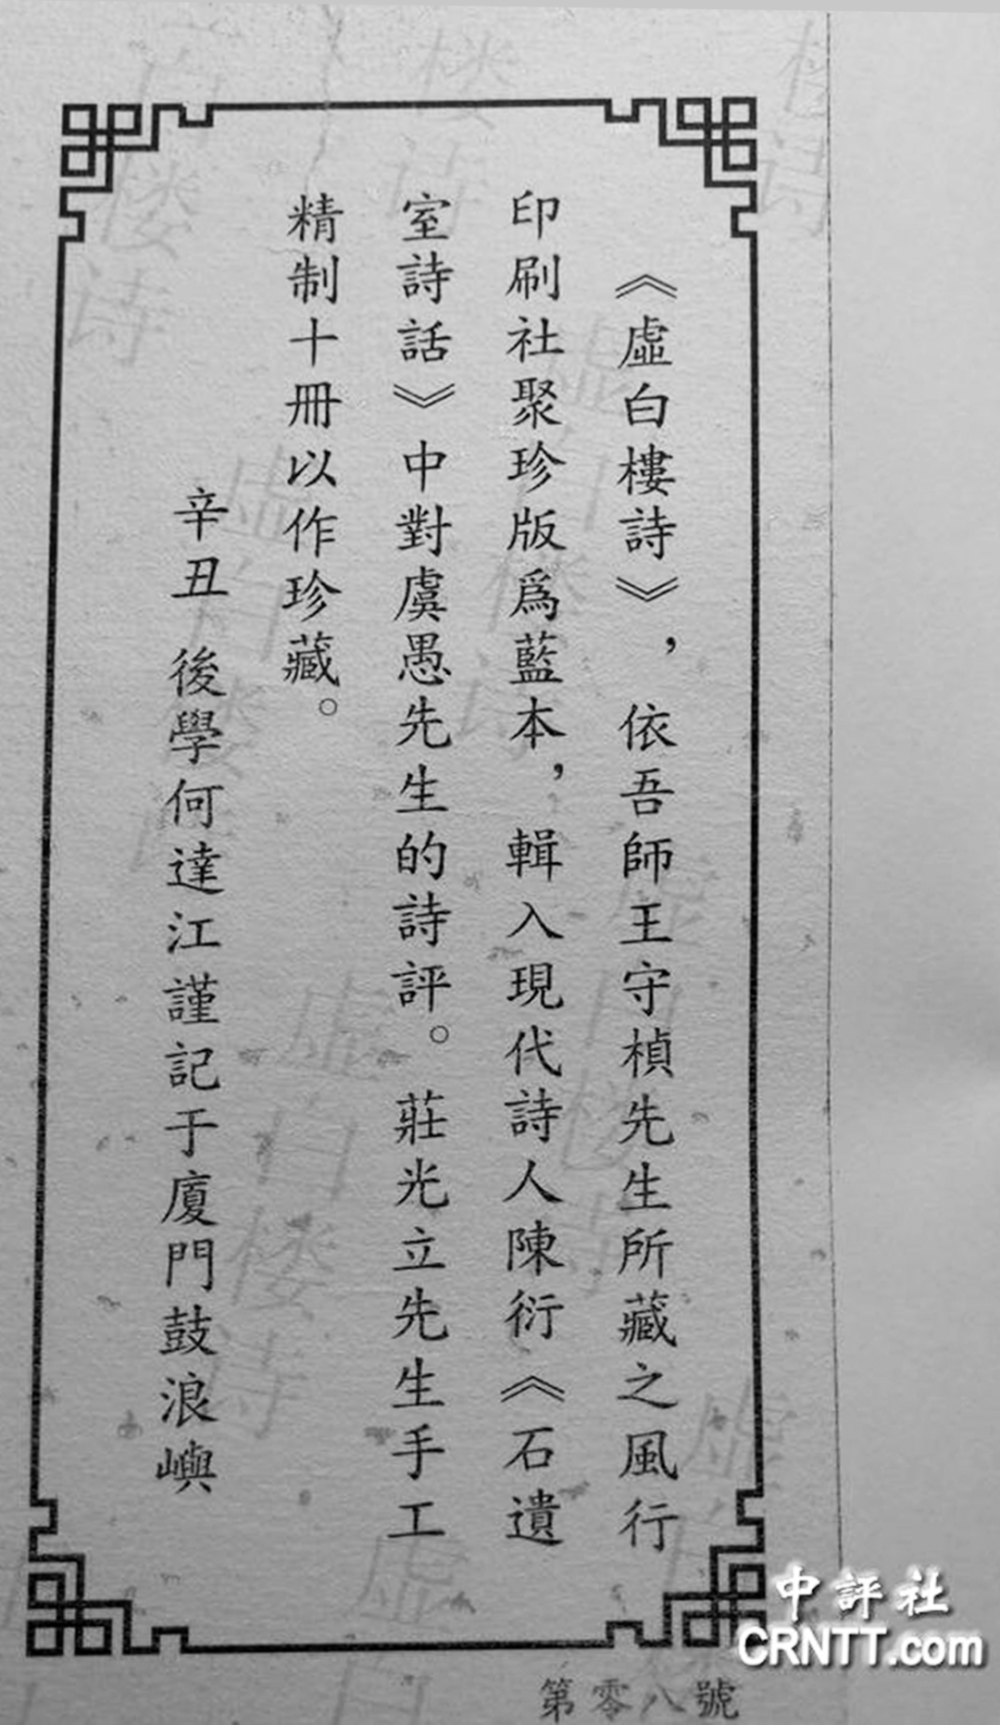 《虛白樓詩》，依吾師王守楨先生所藏之風行
印刷社聚珍版爲藍本，輯入現代詩人陳衍《石遺
室詩話》中對虞愚先生的詩評。莊光立先生手工
精制十冊以作珍藏。
辛丑 後學何達江謹記于廈門鼓浪嶼
第零八號
中評社
CRNTT.com